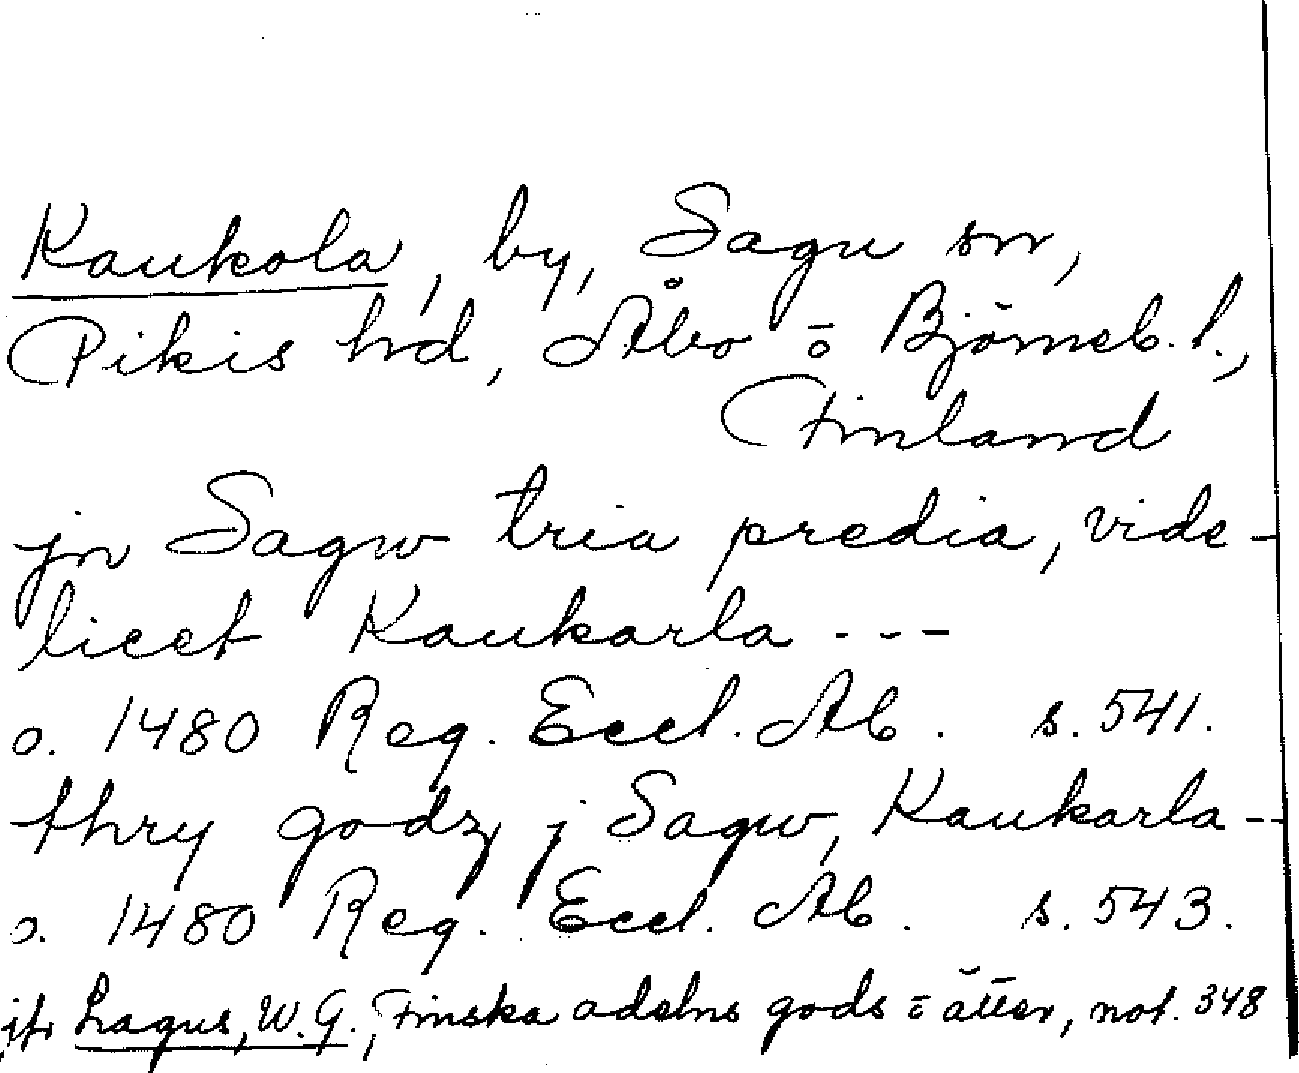 Kaukola, by, Sagu sn,
Pikis hd, Åbo o Björneb. l.,
Finland
jn Sagw tria predia, vide-
licet Kaukarla ---
o. 1480 Reg. Eccl. Ab. s. 541.
thry godz j Sagw, Kaukarla --
o. 1480 Reg. Eccl. Ab. s. 543.
jfr Lagus, W. G., Finska adelns gods o ätter, not. 348